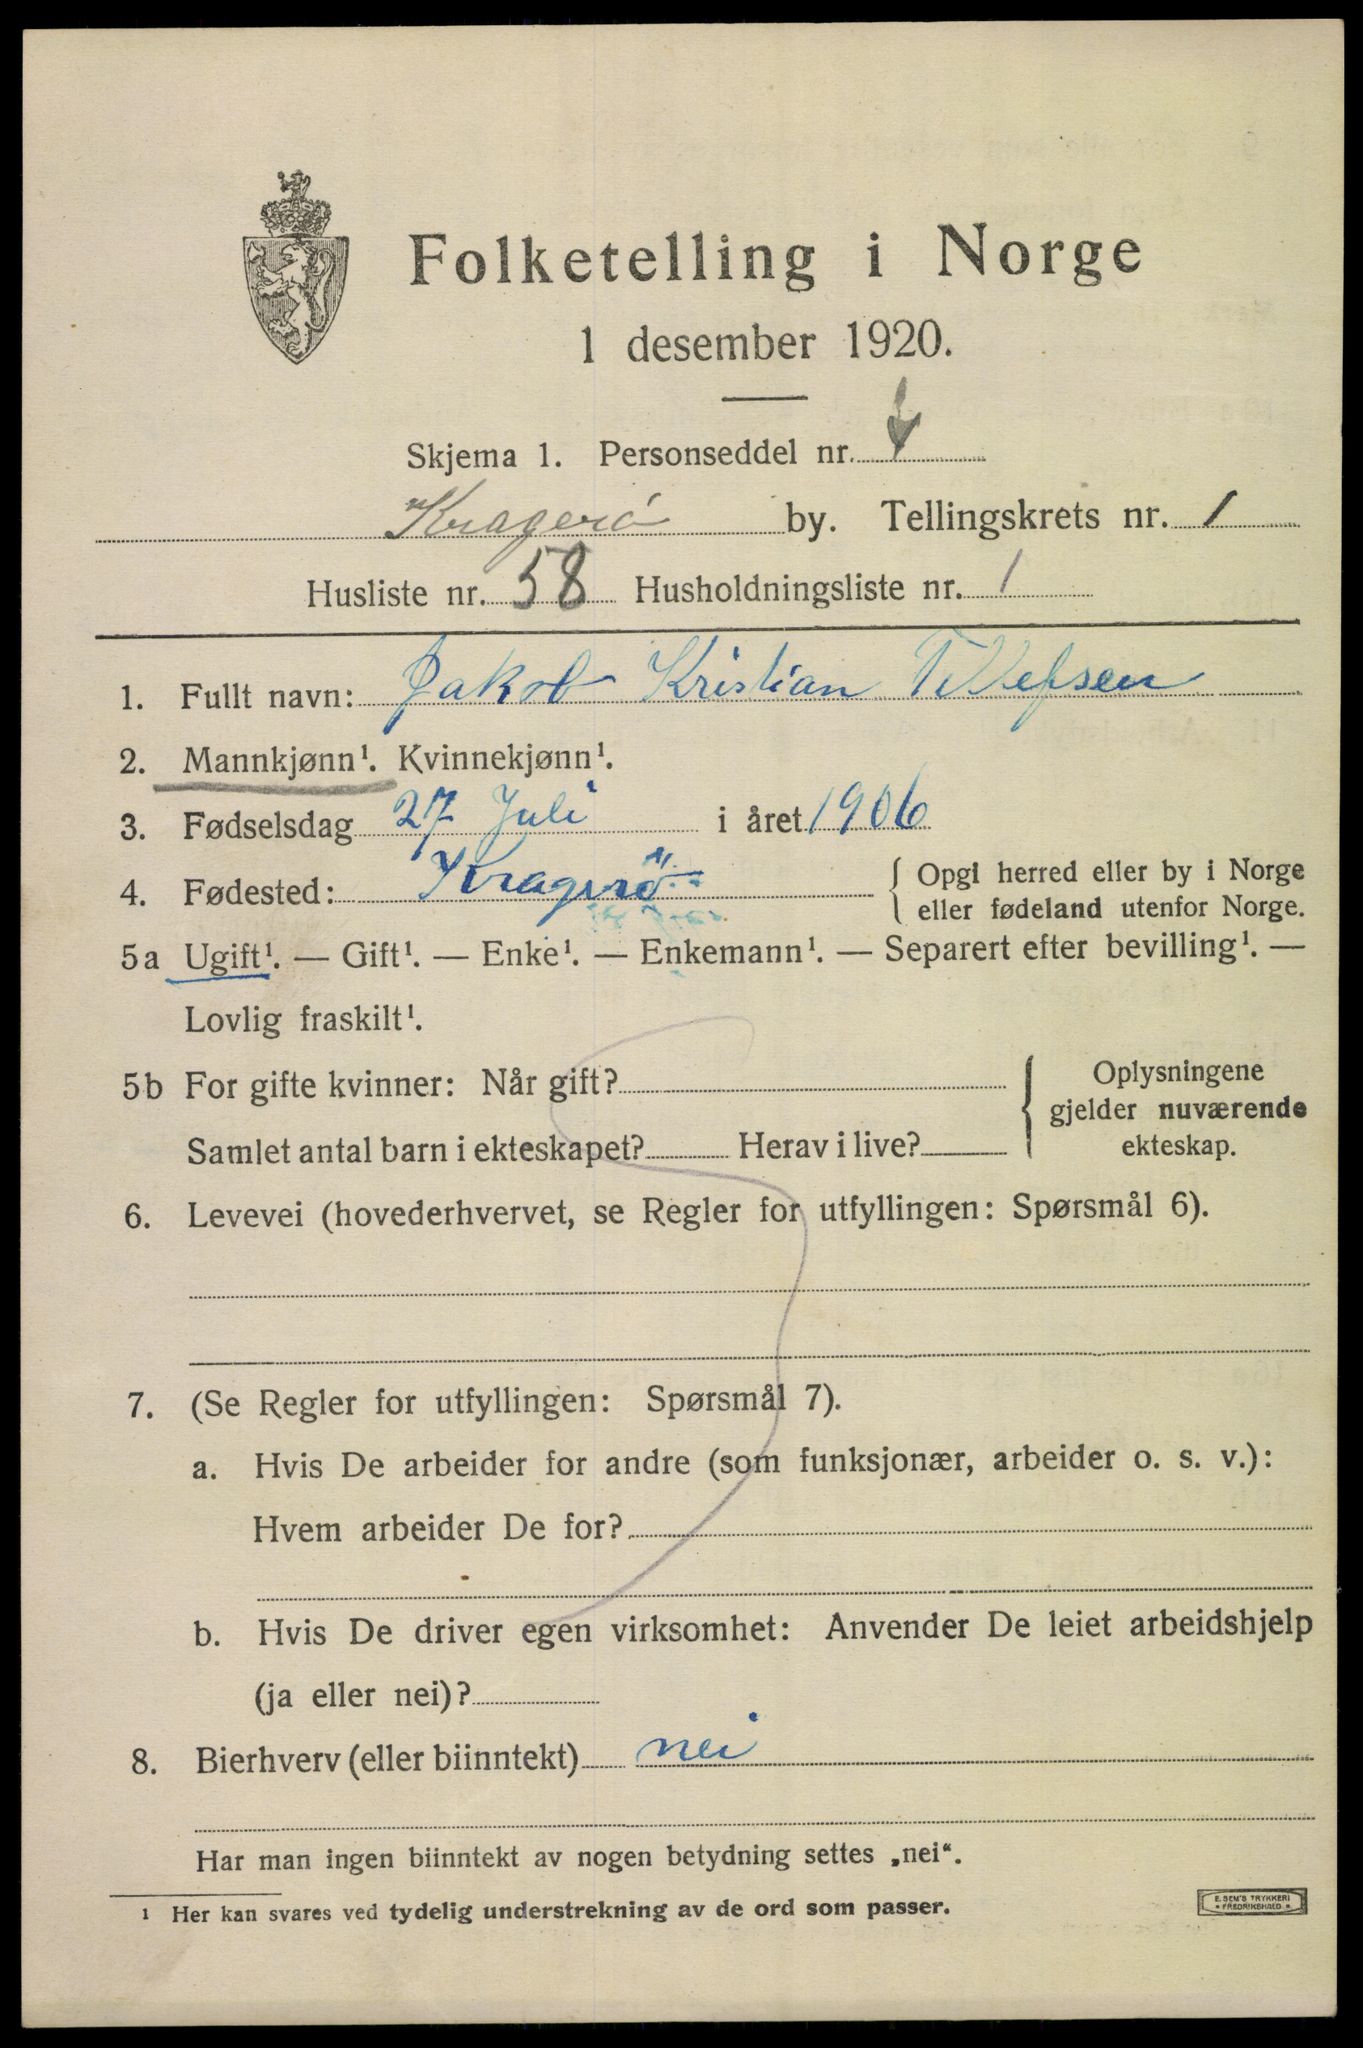 Folketelling i Norge
1 desember 1920.
Skjema 1. Personseddel nr. 4
Kragerö by. Tellingskrets nr. 1
Husliste nr. 58 Husholdningsliste nr. 1
1. Fullt navn: Jakob Kristian Tellefsen
2. Mannkjønn¹. Kvinnekjønn¹.
3. Fødselsdag 27 Juli i året 1906
4. Fødested: Kragerö { Opgi herred eller by i Norge
eller fødeland utenfor Norge.
5a Ugift¹. — Gift¹. — Enke¹. — Enkemann¹. — Separert efter bevilling¹. —
Lovlig fraskilt¹.
5b For gifte kvinner: Når gift? { Oplysningene
gjelder nuværende
Samlet antal barn i ekteskapet? Herav i live? ekteskap.
6. Levevei (hovederhvervet, se Regler for utfyllingen: Spørsmål 6).
7. (Se Regler for utfyllingen: Spørsmål 7).
a. Hvis De arbeider for andre (som funksjonær, arbeider o. s. v.):
Hvem arbeider De for?
b. Hvis De driver egen virksomhet: Anvender De leiet arbeidshjelp
(ja eller nei)?
8. Bierhverv (eller biinntekt) nei
Har man ingen biinntekt av nogen betydning settes „nei“.
¹ Her kan svares ved tydelig understrekning av de ord som passer.
E. SEM'S TRYKKERI
* FREDRIKSHALD *